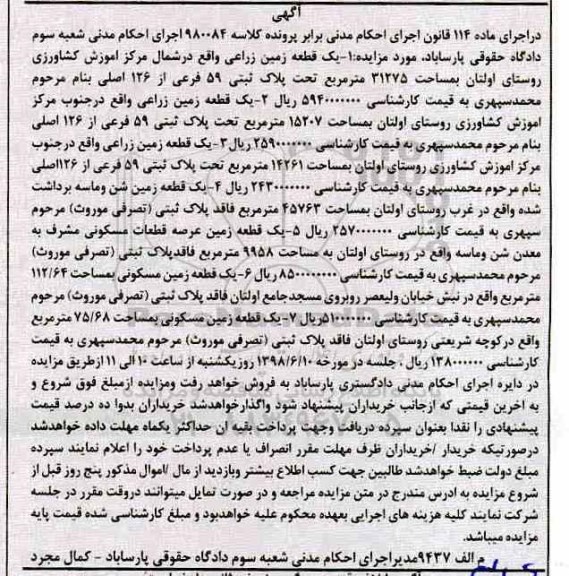 آگهی
دراجرای ماده ۱۱۴ قانون اجرای احکام مدنی برابر پرونده کلاسه ۹۸۰۰۸۴ اجرای احکام مدنی شعبه سوم
دادگاه حقوقی پارساباد، مورد مزایده:۱-یک قطعه زمین زراعی واقع درشمال مرکز اموزش کشاورزی
روستای اولتان بمساحت ۳۱۲۷۵ مترمربع تحت پلاک ثبتی ۵۹ فرعی از ۱۲۶ اصلی بنام مرحوم
محمدسپهری به قیمت کارشناسی ۵۹۴۰۰۰۰۰۰۰ ریال ۲-یک قطعه زمین زراعی واقع درجنوب مرکز
اموزش کشاورزی روستای اولتان بمساحت ۱۵۲۰۷ مترمربع تحت پلاک ثبتی ۵۹ فرعی از ۱۲۶ اصلی
بنام مرحوم محمدسپهری به قیمت کارشناسی ۲۵۹۰۰۰۰۰۰۰ ریال۳-یک قطعه زمین زراعی واقع درجنوب
مرکز اموزش کشاورزی روستای اولتان بمساحت ۱۴۲۶۱ مترمربع تحت پلاک ثبتی ۵۹ فرعی از ۱۲۶اصلی
بنام مرحوم محمدسپهری به قیمت کارشناسی ۲۴۳۰۰۰۰۰۰۰ ریال ۴-یک قطعه زمین شن وماسه برداشت
شده واقع در غرب روستای اولتان بمساحت ۴۵۷۶۳ مترمربع فاقد پلاک ثبتی (تصرفی موروث) مرحوم
سپهری به قیمت کارشناسی ۲۵۷۰۰۰۰۰۰۰ ریال ۵-یک قطعه زمین عرصه قطعات مسکونی مشرف به
معدن شن وماسه واقع در روستای اولتان به مساحت ۹۹۵۸ مترمربع فاقدپلاک ثبتی (تصرفی موروث)
مرحوم محمدسپهری به قیمت کارشناسی ۸۵۰۰۰۰۰۰۰۰ ریال ۶-یک قطعه زمین مسکونی بمساحت ۱۱۲/۶۴
مترمربع واقع در نبش خیابان ولیعصر روبروی مسجدجامع اولتان فاقد پلاک ثبتی (تصرفی موروث) مرحوم
محمدسپهری به قیمت کارشناسی ۵۱۰۰۰۰۰۰۰ریال ۷-یک قطعه زمین مسکونی بمساحت ۷۵/۶۸ مترمربع
واقع درکوچه شریعتی روستای اولتان فاقد پلاک ثبتی (تصرفی موروث) مرحوم محمدسپهری به قیمت
کارشناسی ۱۳۸۰۰۰۰۰۰ ریال ، جلسه در مورخه ۱۳۹۸/۶/۱۰ روزیکشنبه از ساعت ۱۰الی ۱۱ ازطریق مزایده
در دایره اجرای احکام مدنی دادگستری پارساباد به فروش خواهد رفت ومزایده ازمبلغ فوق شروع و
به اخرین قیمتی که ازجانب خریداران پیشنهاد شود واگذارخواهدشد خریداران بدوا ده درصد قیمت
پیشنهادی را نقدا بعنوان سپرده دریافت وجهت پرداخت بقیه آن حداکثر یکماه مهلت داده خواهدشد
درصورتیکه خریدار /خریداران ظرف مهلت مقرر انصراف یا عدم پرداخت خود را اعلام نمایند سپرده
مبلغ دولت ضبط خواهدشد طالبین جهت کسب اطلاع بیشتر وبازدید از مال /اموال مذکور پنج روز قبل از
شروع مزایده به ادرس مندرج در متن مزایده مراجعه و در صورت تمایل میتوانند دروقت مقرر در جلسه
شرکت نمایند کلیه هزینه های اجرایی بعهده محکوم علیه خواهدبود و مبلغ کارشناسی شده قیمت پایه
مزایده میباشد.
م الف ۹۴۳۷مدیراجرای احکام مدنی شعبه سوم دادگاه حقوقی پارساباد - کمال مجرد